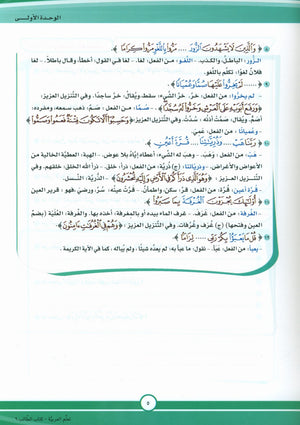 الوحدة الأولى
﴿ وَالَّذِينَ لَا يَشْهَدُونَ الزُّورَ .... مَرُّوا بِاللَّغْوِ مَرُّوا كِرَامًا ﴾
- الزُّور: الباطل والكذب. - اللَّغو: من الفعل، لغا - لغا في القول، أخطأ، وقال باطلًا. - لغا
فلانٌ لغوًا، تكلّم باللغو.
﴿ .... لَمْ يَخِرُّوا عَلَيْهَا صُمًّا وَعُمْيَانًا ﴾
- لم يخرّوا: من الفعل، خرّ - خرّ الشيء: سقط، ويقال: خرّ ساجدًا. وفي التنزيل العزيز:
﴿ وَرَفَعَ أَبَوَيْهِ عَلَى الْعَرْشِ وَخَرُّوا لَهُ سُجَّدًا ﴾ - صُمًّا: من الفعل، صَمّ - صَمّ: ذهب سمعه، ومفرده:
أصمّ، ويقال: صَمّت الأذن: سُدّت. وفي التنزيل العزيز: ﴿ وَحَسِبُوا أَلَّا تَكُونَ فِتْنَةٌ فَعَمُوا وَصَمُّوا ﴾
- وعُميانًا: من الفعل: عَمِيَ.
﴿ رَبَّنَا هَبْ .... وَذُرِّيَّاتِنَا .... قُرَّةَ أَعْيُنٍ ﴾
- هَبْ: من الفعل، وَهَبَ - وهب له الشيء: أعطاه إيّاه بلا عوض. - الهبة: العطيّة الخالية من
الأعواض والأغراض. - وذرّيّاتنا: (ج) ذُرّيّة، من الفعل: ذرأ، خلق. - ذرأ الله الخلق، خلقهم. وفي
التنزيل العزيز: ﴿ وَهُوَ الَّذِي ذَرَأَكُمْ فِي الْأَرْضِ وَإِلَيْهِ تُحْشَرُونَ ﴾ - الذرّيّة، النسل.
- قرّة أعين: قرّة، من الفعل: قرّ، سكن، واطمأنّ. - قرّت عينُه: سُرّ ورضي فهو، قرير العين
﴿ أُولَٰئِكَ يُجْزَوْنَ الْغُرْفَةَ بِمَا صَبَرُوا ﴾
- الغُرفة: من الفعل، غرف. - غرف الماء بيده أو بالمغرفة: أخذه بها. والغرفة: العليّة (بضمّ
العين وفتحها) (ج) غُرف وغُرفات. وفي التنزيل العزيز: ﴿ وَهُمْ فِي الْغُرُفَاتِ آمِنُونَ ﴾
﴿ قُلْ مَا يَعْبَأُ بِكُمْ رَبِّي .... لِزَامًا ﴾
- يعبأ: من الفعل: عبأ. - نقول: ما عبأ به، لم يعدّه شيئًا، ولم يُباله. كما في الآية الكريمة.
٥
تعلّم العربيّة - كتاب الطالب ٦